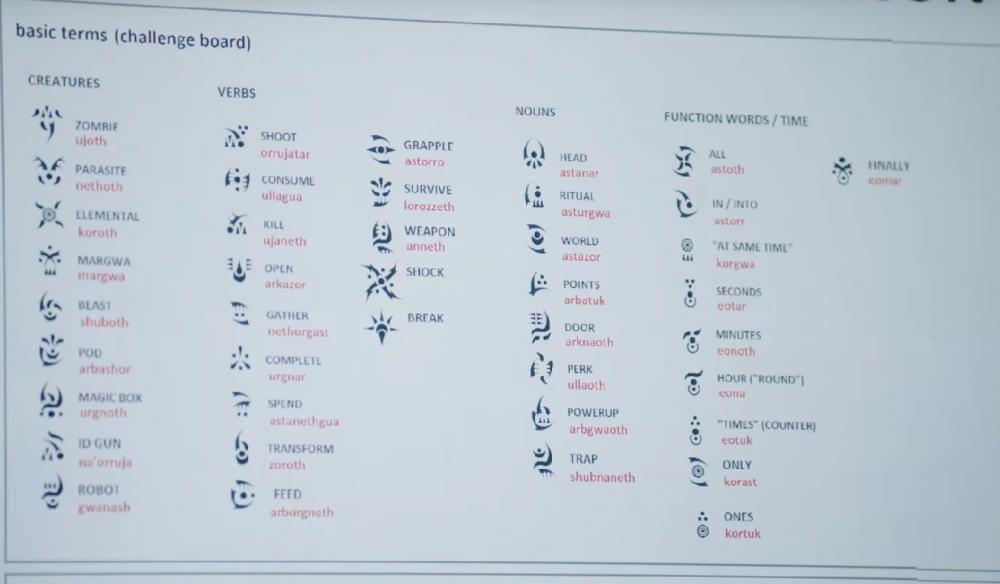 basic terms (challenge board)
CREATURES
ZOMBIE
ujoth
PARASITE
nethoth
ELEMENTAL
koroth
MARGWA
margwa
BEAST
shuboth
POD
arbashor
MAGIC BOX
urgnoth
ID GUN
na'orruja
ROBOT
gwanash
VERBS
SHOOT
orrujatar
CONSUME
ullagua
KILL
ujaneth
OPEN
arkazor
GATHER
nethurgast
COMPLETE
urgnar
SPEND
astanethgua
TRANSFORM
zoroth
FEED
arburgneth
GRAPPLE
astorro
SURVIVE
lorozzeth
WEAPON
anneth
SHOCK
BREAK
NOUNS
HEAD
astanar
RITUAL
asturgwa
WORLD
astazor
POINTS
arbatuk
DOOR
arknaoth
PERK
ullaoth
POWERUP
arbgwaoth
TRAP
shubnaneth
FUNCTION WORDS / TIME
ALL
astoth
IN / INTO
astorr
"AT SAME TIME"
korgwa
SECONDS
eotar
MINUTES
eonoth
HOUR ("ROUND")
eona
"TIMES" (COUNTER)
eotuk
ONLY
korast
ONES
kortuk
FINALLY
eomar